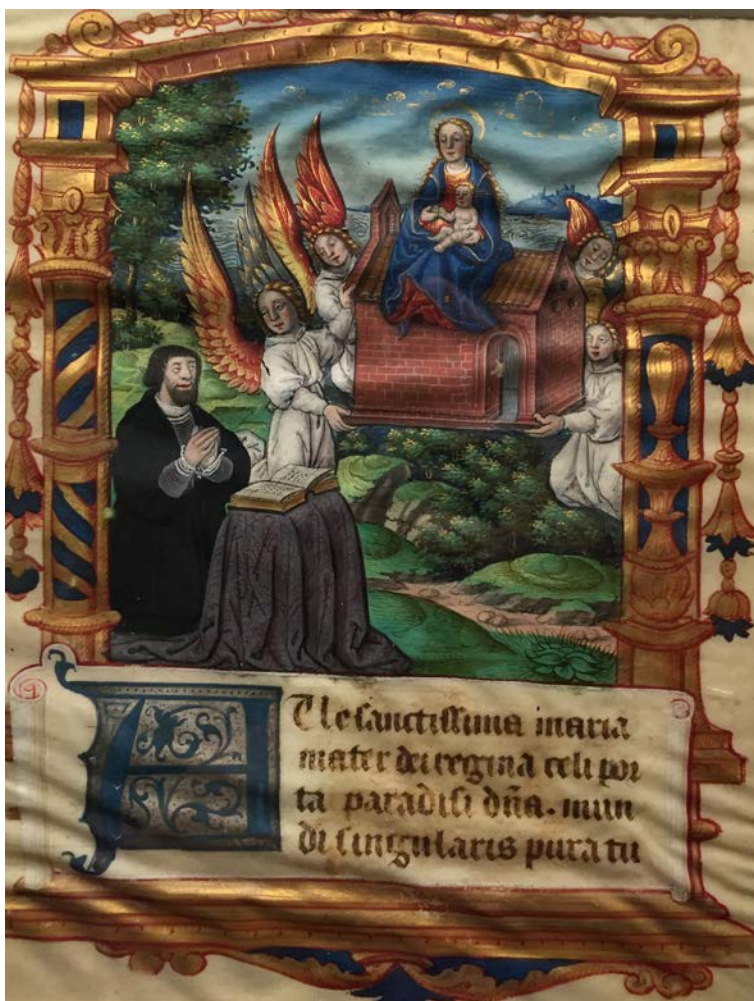 AUe sanctissima maria
mater dei regina celi por
ta paradisi dña. mun
di singularis pura tu